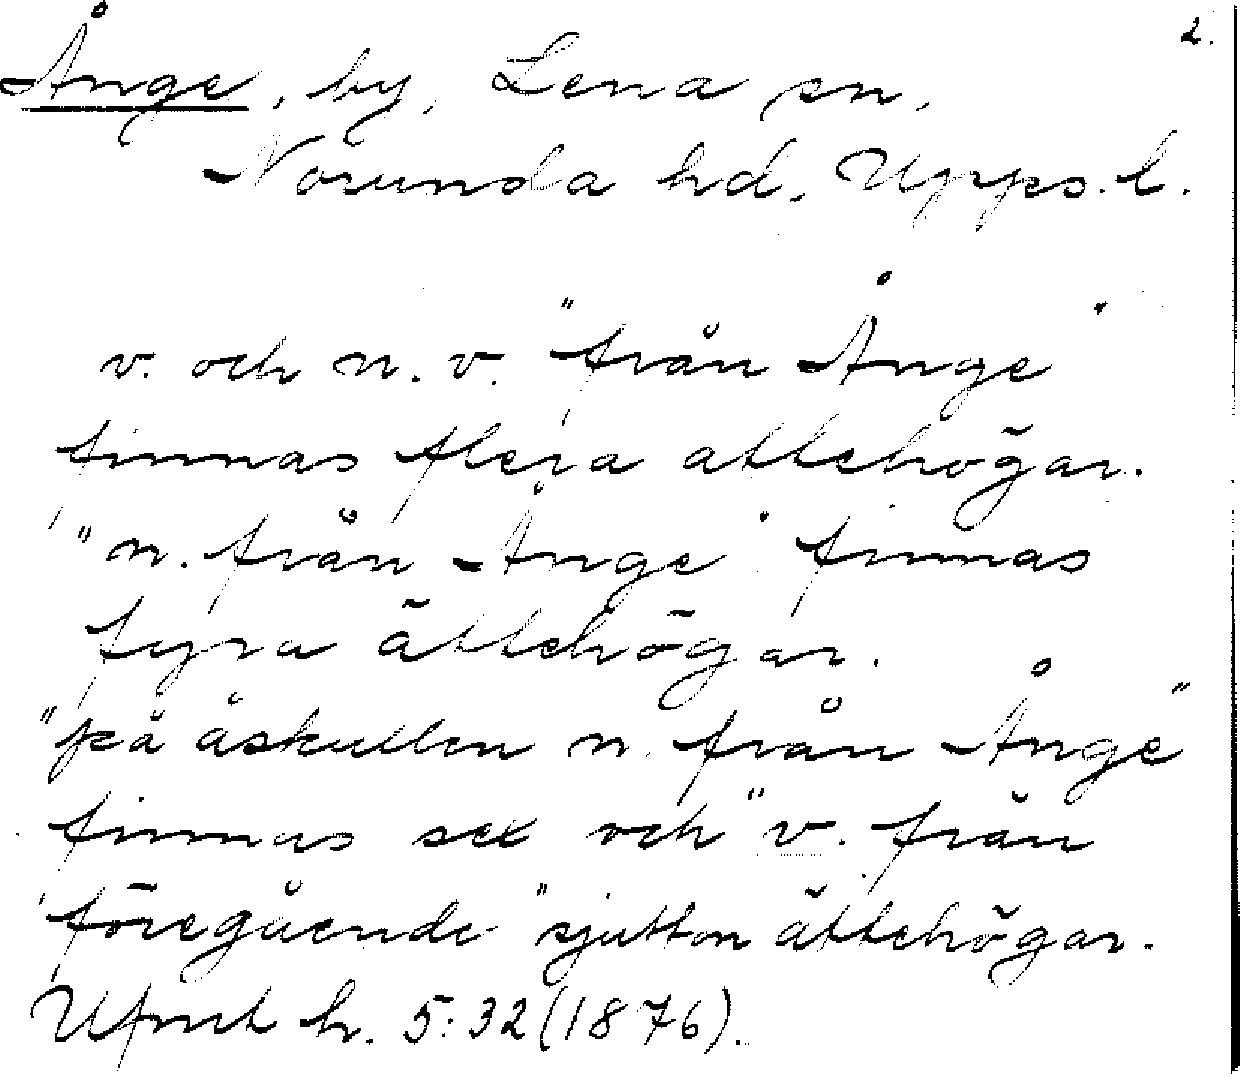 2.
Ånge, by, Lena sn,
Norunda hd, Upps. l.
v. och n. v. "från Ånge"
finnas flera ättehögar.
"n. från Ånge" finnas
fyra ättehögar.
"på åskullen n. från Ånge"
finnas sex och "v. från
föregående" sjutton ättehögar.
Ufmt h. 5:32 (1876).